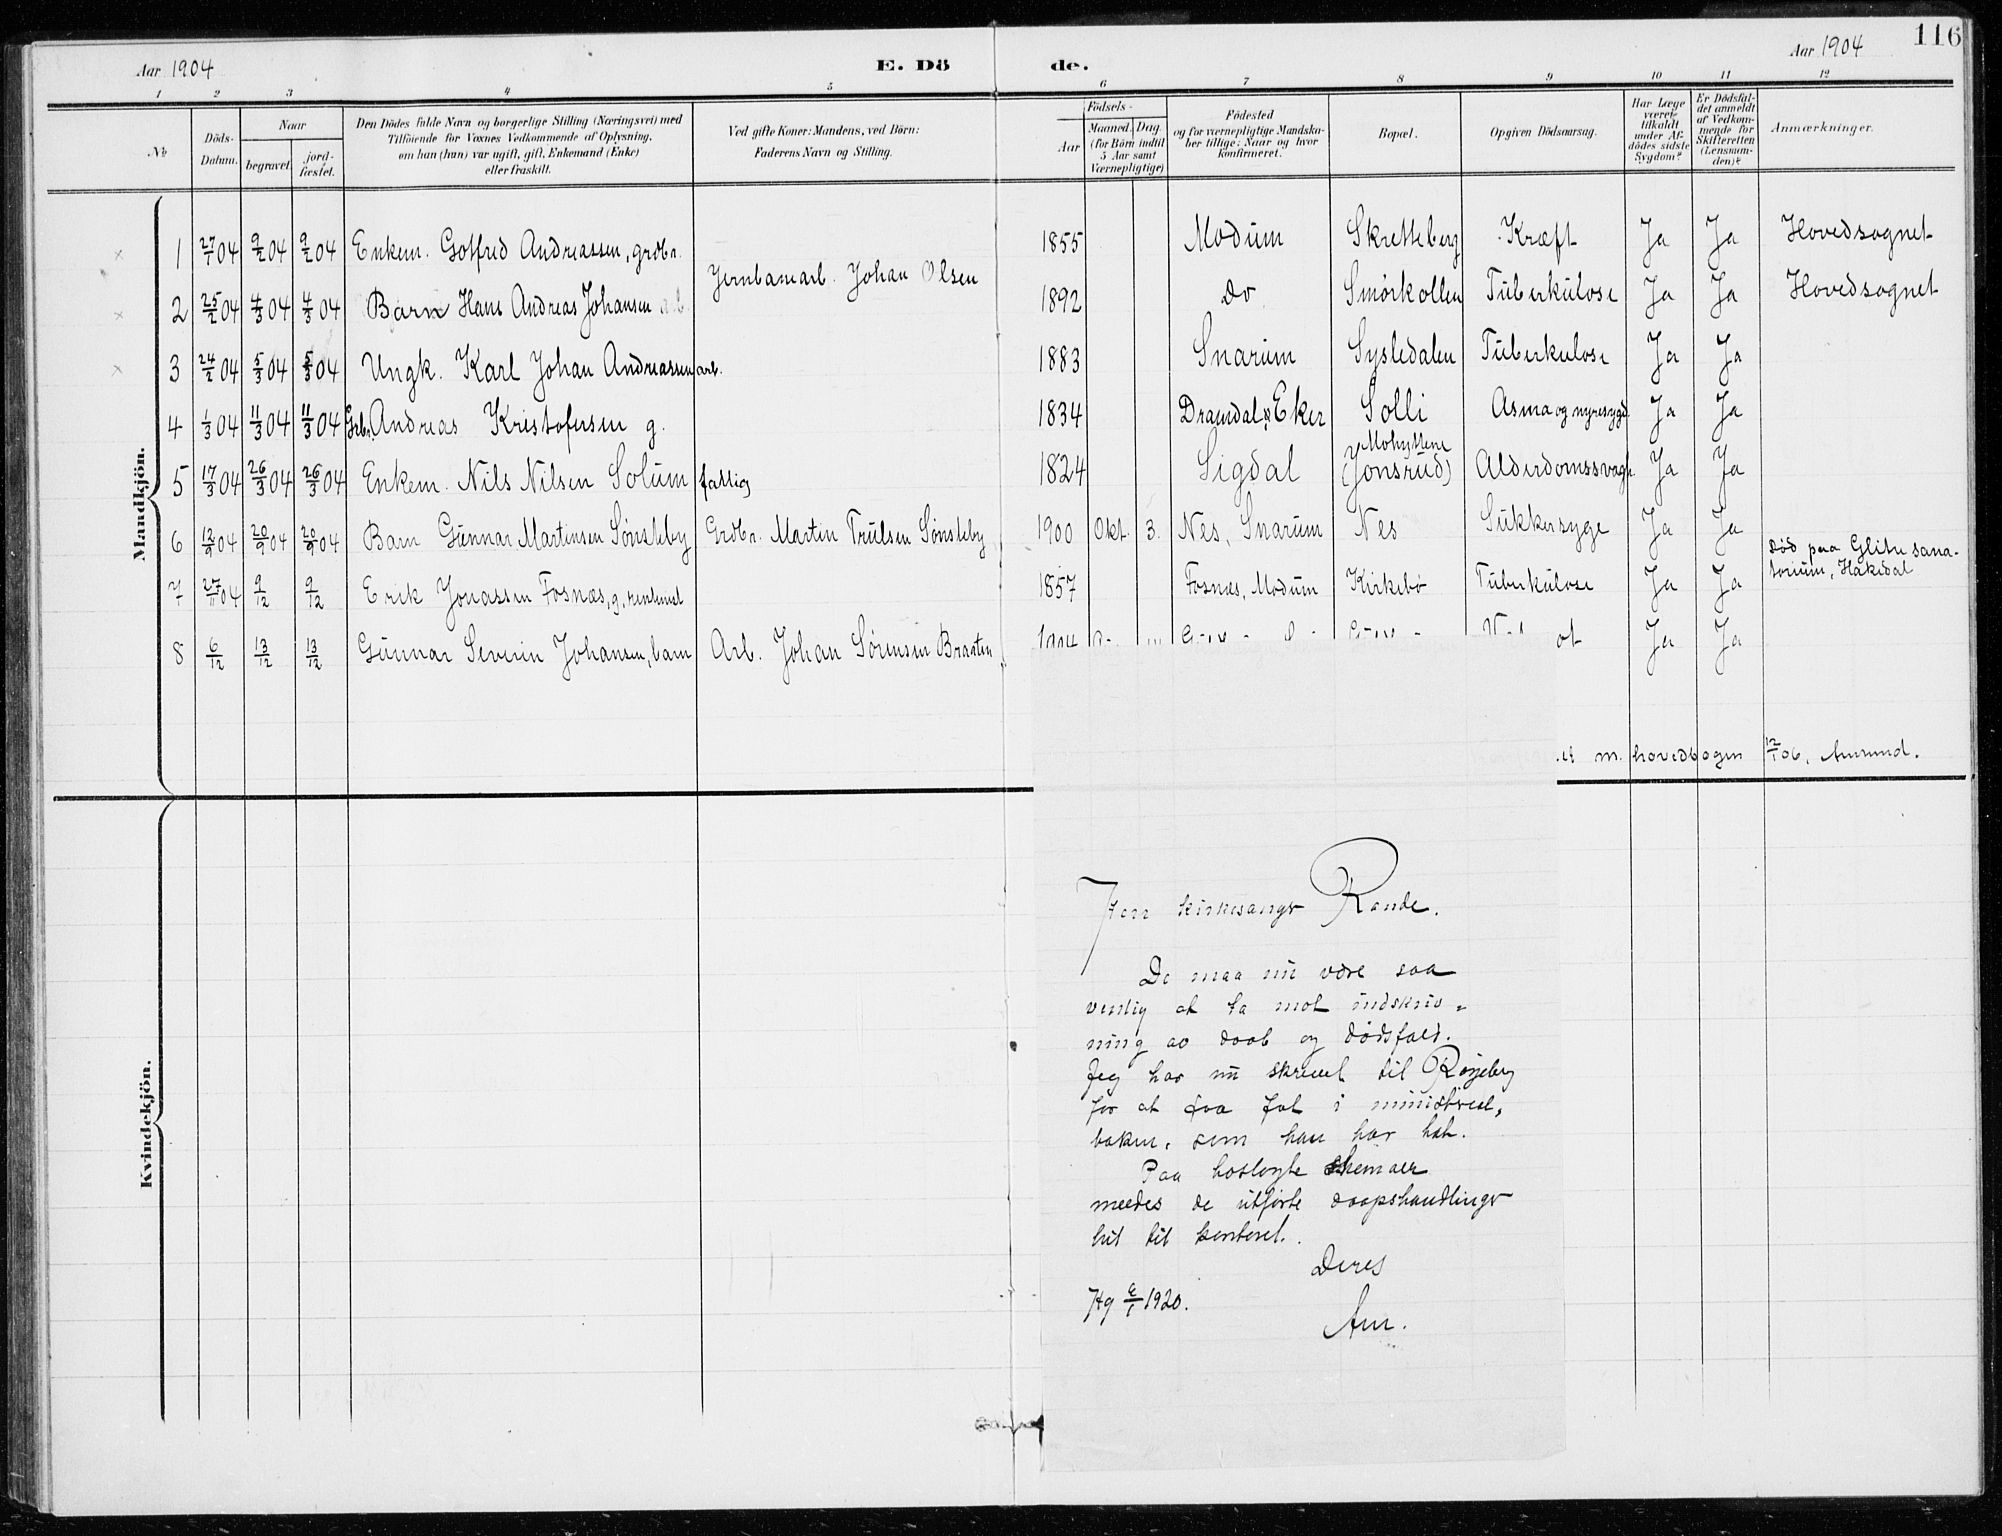 116
Aar 1904 E. Dö de. Aar 1904
1 2 3 4 5 6 7 8 9 10 11 12
No Döds-Datum. Naar begravet. jordfæstet. Den Dödes fulde Navn og borgerlige Stilling (Næringsvei) med Tilföiende for Voxnes Vedkommende af Oplysning, om han (hun) var ugift, gift, Enkemand (Enke) eller fraskilt. Ved gifte Koner: Mandens, ved Börn: Faderens Navn og Stilling. Födsels- Aar Maaned. Dag. (for Börn indtil 5 Aar samt Værnepligtige) Födested og for værnepligtige Mandskaber tillige: Naar og hvor konfirmeret. Bopæl. Opgiven Dödsaarsag. Har Læge været tilkaldt under Afdödes sidste Sygdom? Er Dödsfaldet anmeldt af Vedkommende for Skifteretten (Lensmanden)? Anmærkninger.
Mandkjön.
1 27/1 04 9/2 04 9/2 04 Enkem. Gotfred Andreassen, grdbr. 1855 Modum Skretteberg Kræft Ja Ja Hovedsognet
2 25/2 04 4/3 04 4/3 04 Barn Hans Andreas Johansen Jernbanearb. Johan Olsen 1892 do Smørkollen Tuberkulose Ja Ja Hovedsognet
3 24/2 04 5/3 04 5/3 04 Ungk. Karl Johan Andreassen arb. 1883 Snarum Sysledalen Tuberkulose Ja Ja
4 1/3 04 11/3 04 11/3 04 Grbr. Andreas Kristofersen g. 1834 Eker Solli Asma og nyresygd. Ja Ja
5 17/3 04 26/3 04 26/3 04 Enkem. Nils Nilsen Solum fattig 1824 Sigdal Mohyttene (Jonsrud) Alderdomssvagh. Ja Ja
6 12/9 04 20/9 04 20/9 04 Barn Gunnar Martinsen Sønsteby Grdbr. Martin Trulsen Sønsteby 1900 Okt. 3. Nes, Snarum Nes Sukkersyge Ja Ja
7 27/11 04 9/12 9/12 Erik Jonassen Fosnæs, g, rentenist 1857 Fosnæs, Modum Kirkebø Tuberkulose Ja Ja Død paa Glitre sanatorium, Hakedal
8 6/12 13/12 13/12 Gunnar Severin Johansen, barn Arb. Johan Sørensen Braaten 1904 Ja Ja
m. hovedbogen 12/1 06, Amrund.
Kvindekjön.
Herr kirkesanger Rande.
De maa nu være saa
venlig at ta mot indskriv-
ning av daab og dødsfald.
Jeg har nu skrevet til Røijeberg
for at faa fat i ministerial-
boken, som han har hat.
Paa hoslagte skemaer
meldes de utførte daapshandlinger
hit til kontoret.
Deres
Hg 6/1 1920.
Am.